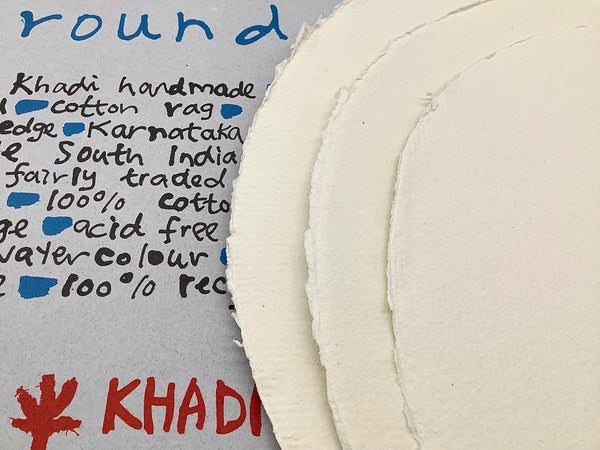 round
Khadi handmade
cotton rag
edge Karnataka
South India
fairly traded
100% cotto
acid free
watercolour
100% rec
KHADI